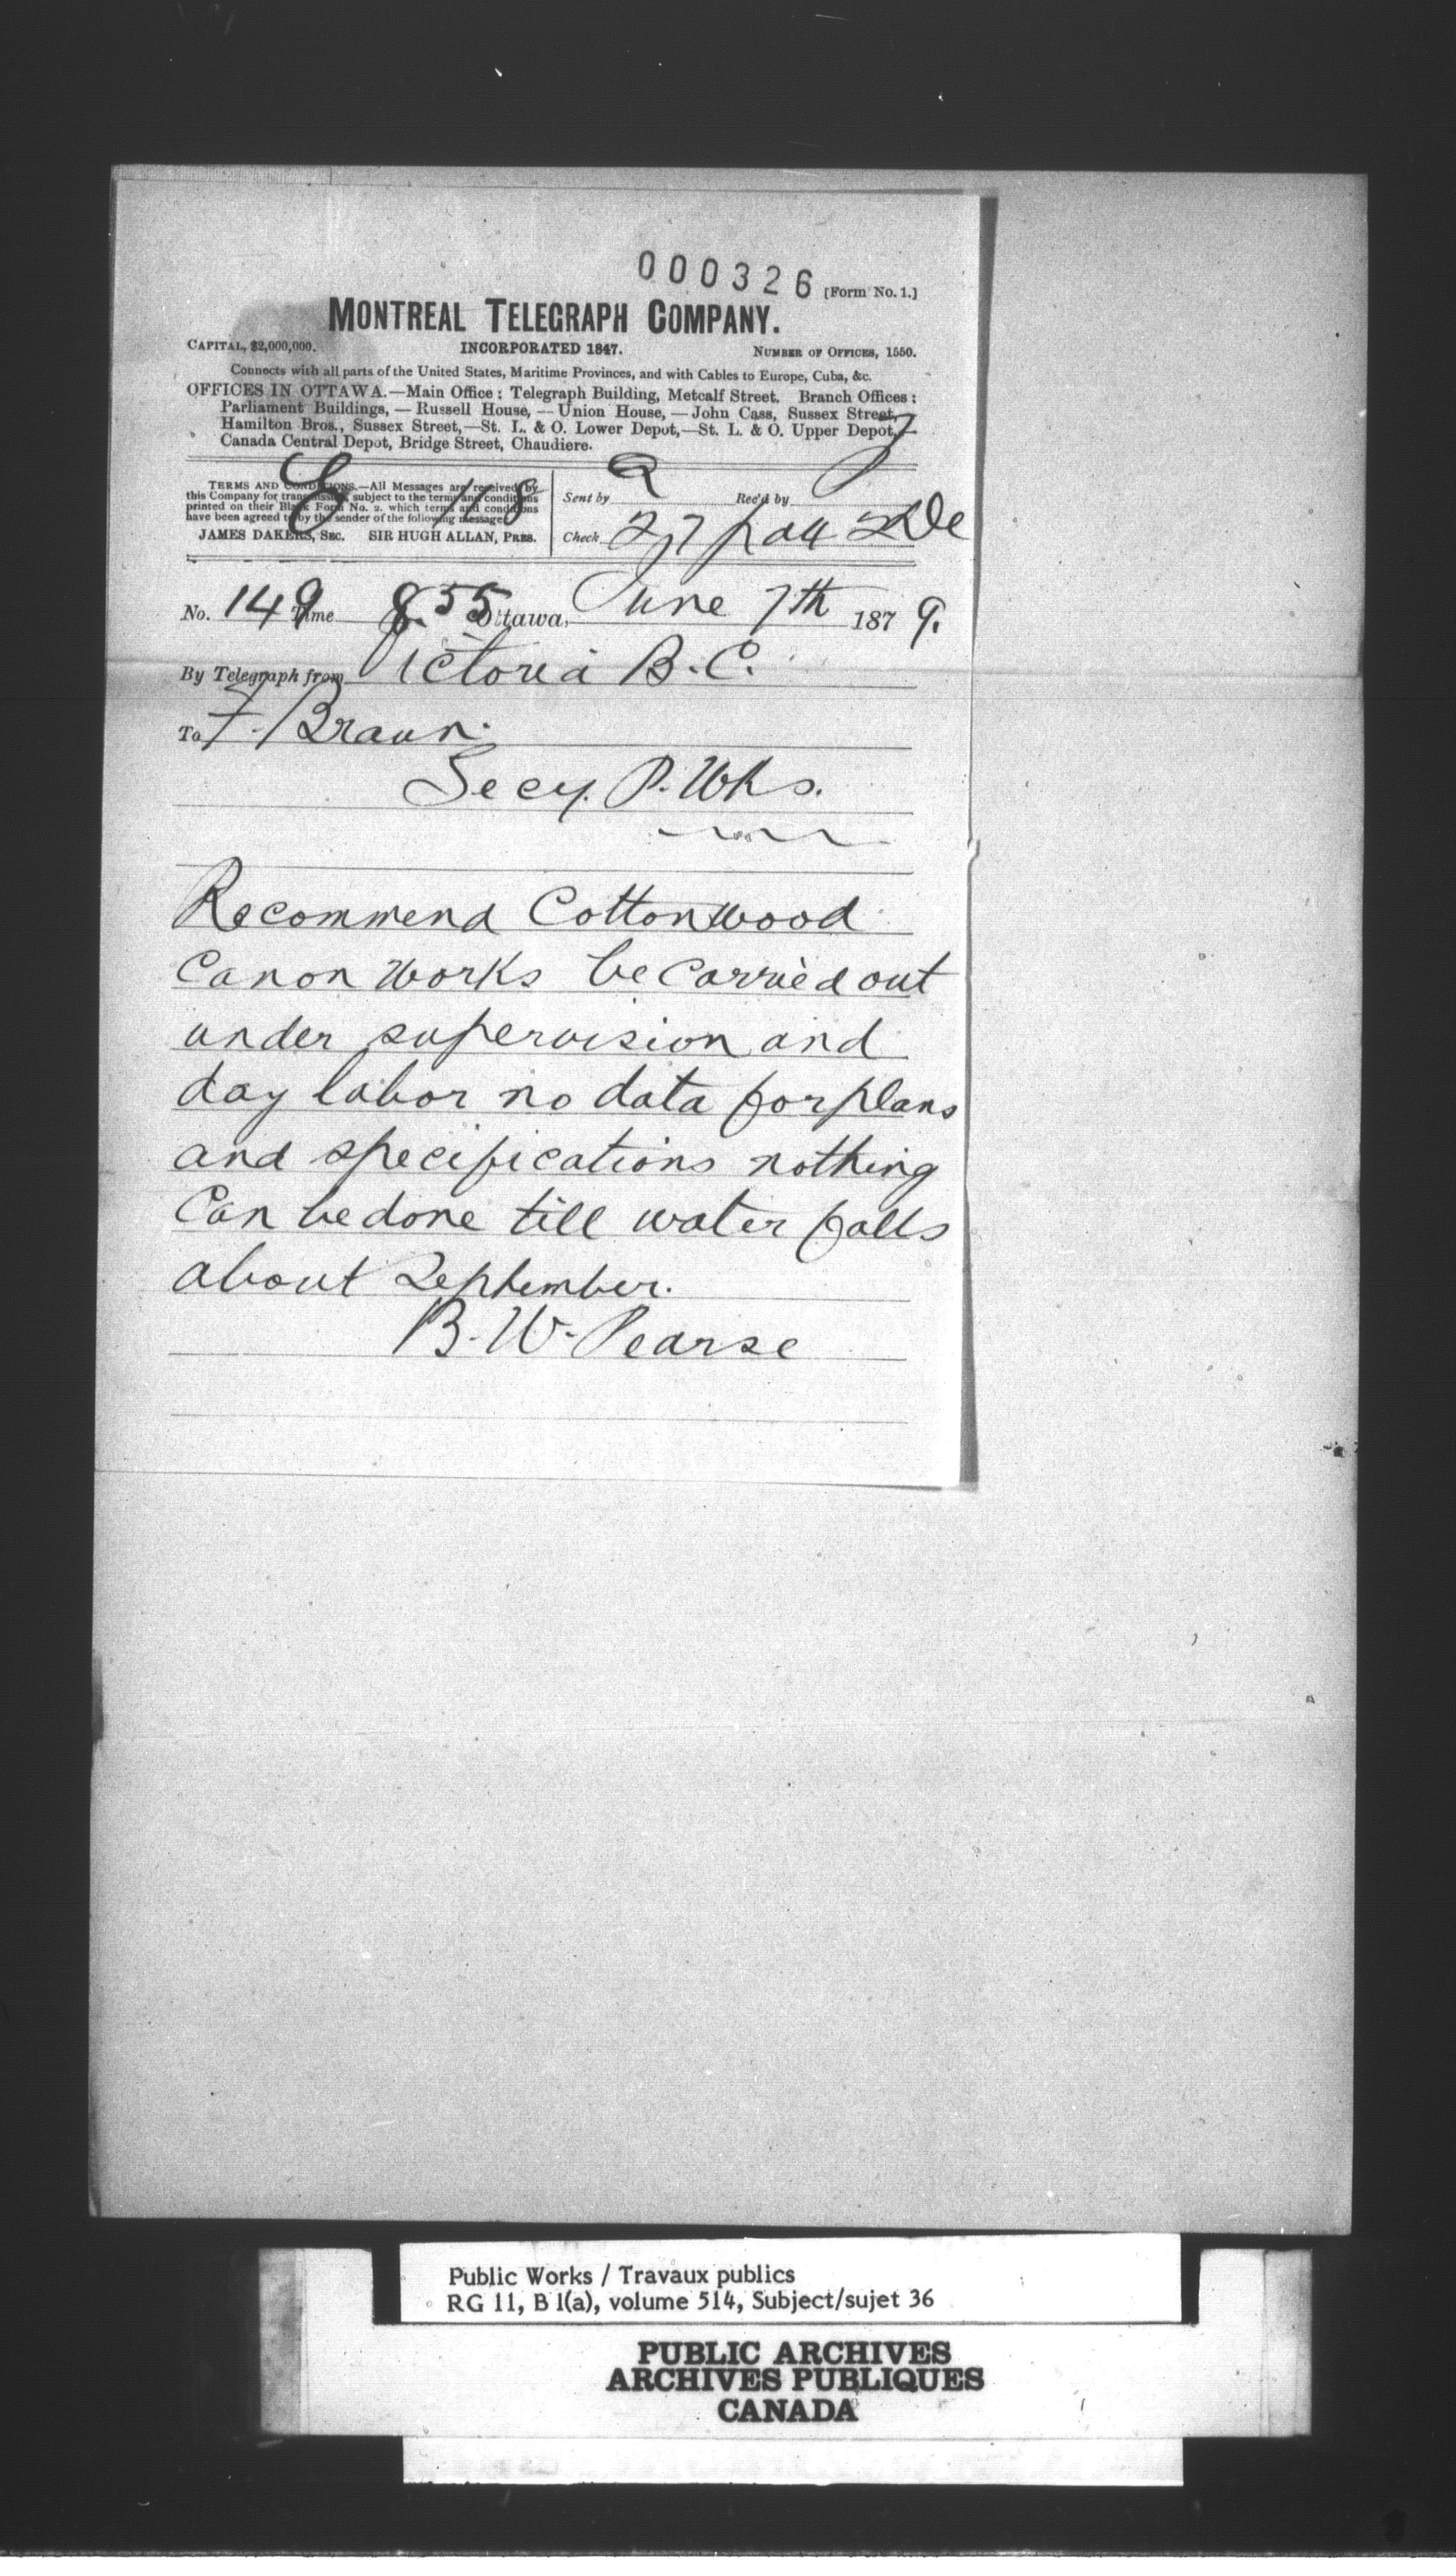 000326
[Form No. 1.]
MONTREAL TELEGRAPH COMPANY.
CAPITAL, $2,000,000. INCORPORATED 1847. NUMBER OF OFFICES, 1550.
Connects with all parts of the United States, Maritime Provinces, and with Cables to Europe, Cuba, &c.
OFFICES IN OTTAWA.—Main Office: Telegraph Building, Metcalf Street. Branch Offices:
Parliament Buildings,—Russell House,—Union House,—John Cass, Sussex Street,
Hamilton Bros., Sussex Street,—St. L. & O. Lower Depot,—St. L. & O. Upper Depot,—
Canada Central Depot, Bridge Street, Chaudiere.
TERMS AND CONDITIONS.—All Messages are received by
this Company for transmission, subject to the terms and conditions
printed on their Blank Form No. 2, which terms and conditions
have been agreed to by the sender of the following message.
JAMES DAKERS, SEC. SIR HUGH ALLAN, PRES.
Sent by Rec'd by
Check 27
No. 149 Time 8.55 Ottawa, June 7th 1879.
By Telegraph from Victoria B.C.
To F. Braun.
Secy. P. Wks.
Recommend Cottonwood
Canon works be carried out
under supervision and
day labor no data for plans
and specifications nothing
Can be done till water falls
about September.
B. W. Pearse
Public Works / Travaux publics
RG 11, B 1(a), volume 514, Subject/sujet 36
PUBLIC ARCHIVES
ARCHIVES PUBLIQUES
CANADA